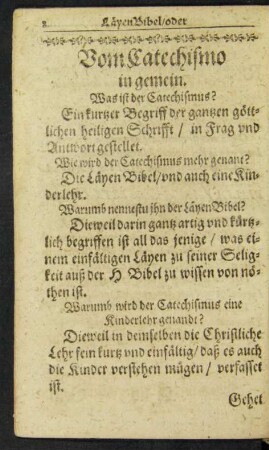 2. LäyenBibel/oder
Vom Catechismo
in gemein.
Was ist der Catechismus?
Ein kurtzer Begriff der gantzen gött-
lichen heiligen Schrifft / in Frag vnd
Antwort gestellet.
Wie wird der Catechismus mehr genant?
Die Läyen Bibel/vnd auch eine Kin-
derlehr.
Warumb nennestu jhn der Läyen Bibel?
Dieweil darin gantz artig vnd kürtz-
lich begriffen ist all das jenige / was ei-
nem einfältigen Läyen zu seiner Selig-
keit auß der H Bibel zu wissen von nö-
then ist.
Warumb wird der Catechismus eine
Kinderlehr genandt?
Dieweil in demselben die Christliche
Lehr fein kurtz vnd einfältig/daß es auch
die Kinder verstehen mügen/ verfasset
ist.
Gehet